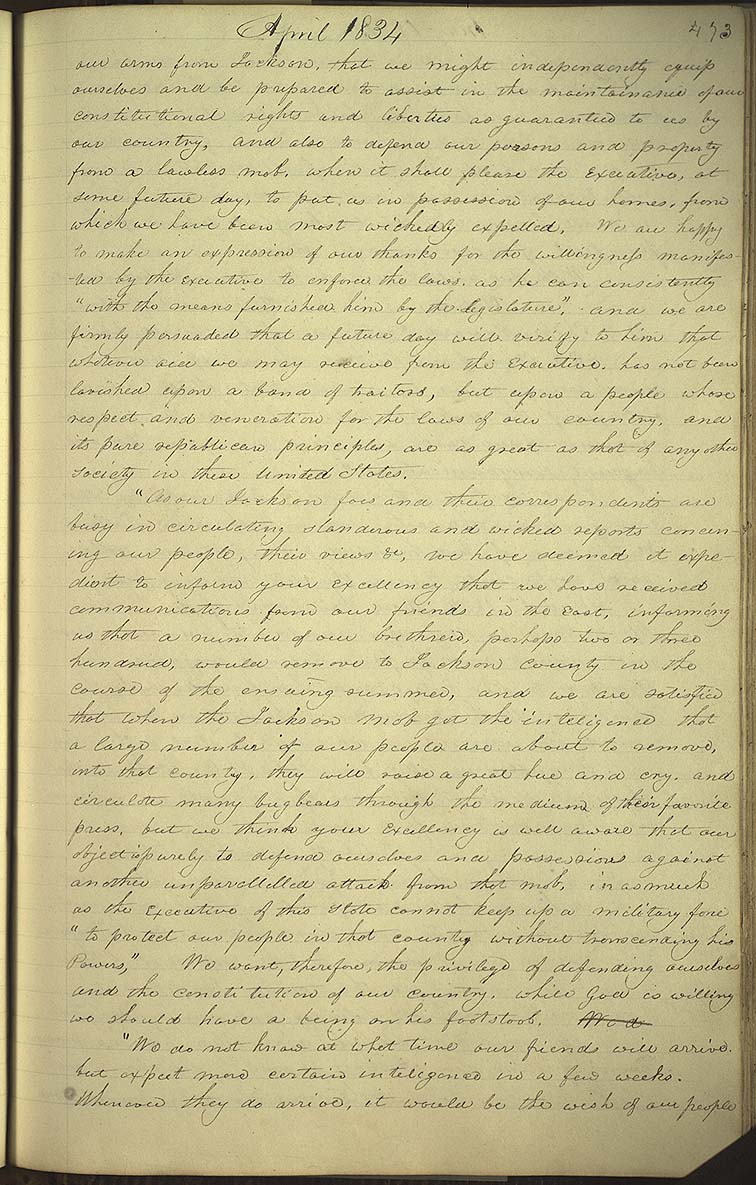 April 1834
473
our arms from Jackson, that we might independently equip
ourselves and be prepared to assist in the maintainance of our
constitutional rights and liberties as guarantied to us by
our country, and also to defend our persons and property
from a lawless mob, when it shall please the Executive, at
some future day, to put us in possession of our homes, from
which we have been most wickedly expelled. We are happy
to make an expression of our thanks for the willingness manifes-
-ted by the executive to enforce the laws, as he can consistently
"with the means furnished him by the legislature", and we are
firmly persuaded that a future day will verify to him that
whatever aid we may receive from the Executive, has not been
lavished upon a band of traitors, but upon a people whose
respect and veneration for the laws of our country, and
its pure republican principles, are as great as that of any other
society in these United States.
"As our Jackson foes and their correspondents are
busy in circulating slanderous and wicked reports concern-
ing our people, their views &c, we have deemed it expe-
dient to inform your Excellency that we have received
communications from our friends in the East, informing
us that a number of our brethren, perhaps two or three
hundred, would remove to Jackson County in the
course of the ensuing summer, and we are satisfied
that when the Jackson mob get the inteligence that
a large number of our people are about to remove,
into that county, they will raise a great hue and cry, and
circulate many bugbears through the medium of their favorite
press, but we think your Excellency is well aware that our
object is purely to defend ourselves and possessions against
another unparallelled attack from that mob, inasmuch
as the Executive of this State cannot keep up a military force
"to protect our people in that county without transcending his
Powers," We want, therefore, the privilege of defending ourselves
and the constitution of our country, while God is willing
we should have a being on his footstool.
"We do not know at what time our friends will arrive.
but expect more certain inteligence in a few weeks.
Whenever they do arrive, it would be the wish of our people